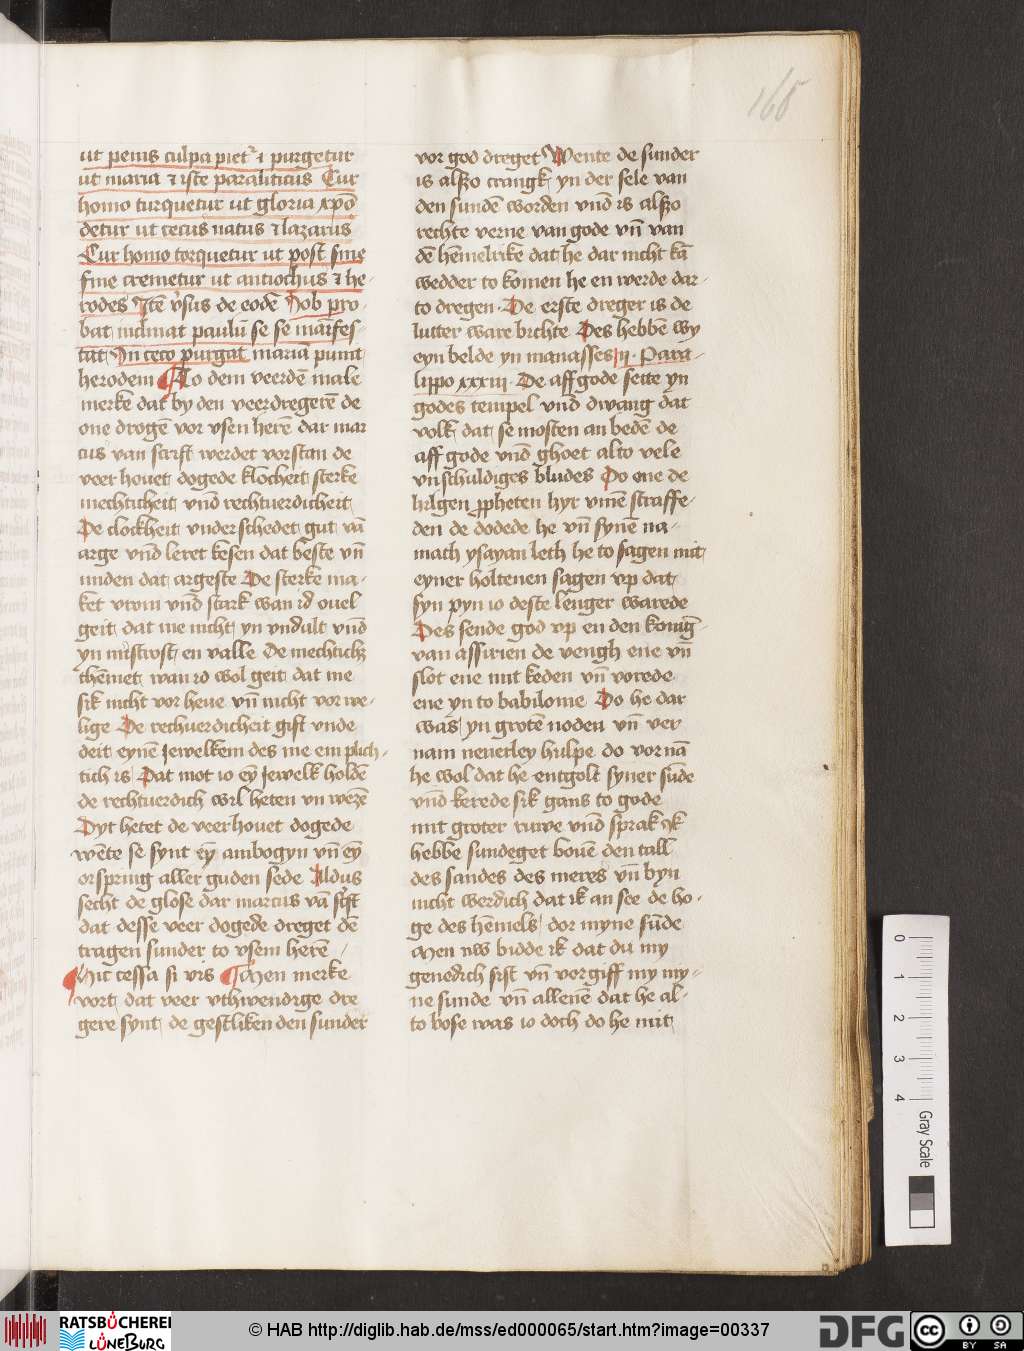 165
ut penis culpa piet᷑ ⁊ purgetur
ut maria ⁊ iste paraliticus Cur
homo turquetur ut gloria xpō
detur ut cecus natus ⁊ lazarus
Cur homo torquetur ut post sine
fine cremetur ut antiochus ⁊ he
rodes Itē v̓sus de eodē Iob pro-
bat inclinat paulū se se manifes-
tat In ceco purgat mariā punit
herodem To dem veerdē male
merke dat by den veerdregerē de
one drogē vor vsen herē dar mar
cus van scrift werdet vorstan de
veer houet dogede klocheit sterke
mechticheit vnd rechtuerdicheit
De clockheit vnderschedet gut vā
arge vnd leret kesen dat beste vn̄
miden dat argeste De sterke ma-
ket vrom vnd stark wan id ouel
geit dat me nicht yn vndult vnd
yn mistrost en valle De mechtich
cheit wan id wol geit dat me
sik nicht vor heue vn̄ nicht vor we-
lige De rechuerdicheit gift vnde
deit eynē jewelkem des me em plich-
tich is Dat mot io ey jewelk holdē
de rechtuerdich wil heten vn wezē
Dyt hetet de veerhouet dogede
wēte se synt eȳ anbogyn vn̄ eȳ
orspring aller guden sede Aldus
secht de glose dar marcus vā scft
dat desse veer dogede dreget dē
tragen sunder to vsem herē
Hic cessa si vis Men merke
vort dat veer vthwendige dre
gere synt de gestliken den sunder
vor god dreget Wente de sunder
is alßo crangk yn der sele van
den sundē worden vnd is alßo
rechte verne van gode vn̄ van
dē hēmelrikē dat he dar nicht kā
wedder to komen he en werde dar-
to dregen De erste dreger is de
lutter ware bichte Des hebbē wy
eyn belde yn manasses ij Para-
lippo xxxiii De affgode sette yn
godes tempel vnd dwang dat
volk dat se mosten an bedē de
affgode vnd ghoet alto vele
vnschuldiges bludes Do one de
hilgen ppheten hyr vmē straffe-
den de dodede he vn̄ synē na-
mach ysayan leth he to sagen mit
eyner holtenen sagen vp dat
syn pyn io deste lenger warede
Des sende god vp en den koniḡ
van assirien de vengh ene vn̄
slot ene mit keden vn̄ vorede
ene yn to babilonie Do he dar
was yn grotē noden vn̄ ver
nam neuerley hulpe do vor nā
he wol dat he entgolt syner sūde
vnd kerede sik gans to gode
mit groter ruwe vnd sprak Ik
hebbe sundeget bouē den tall
des sandes des meres vn̄ byn
nicht werdich dat ik an see de ho-
ge des hēmels dor myne sūde
Men nw bidde ik dat du my
genedich sist vn̄ vorgiff my my-
ne sunde vn̄ allenē dat he al-
to bose was io doch do he mit
0 1 2 3 4
Gray Scale
RATSBÜCHEREI
LÜNEBURG
© HAB http://diglib.hab.de/mss/ed000065/start.htm?image=00337
DFG
cc BY SA